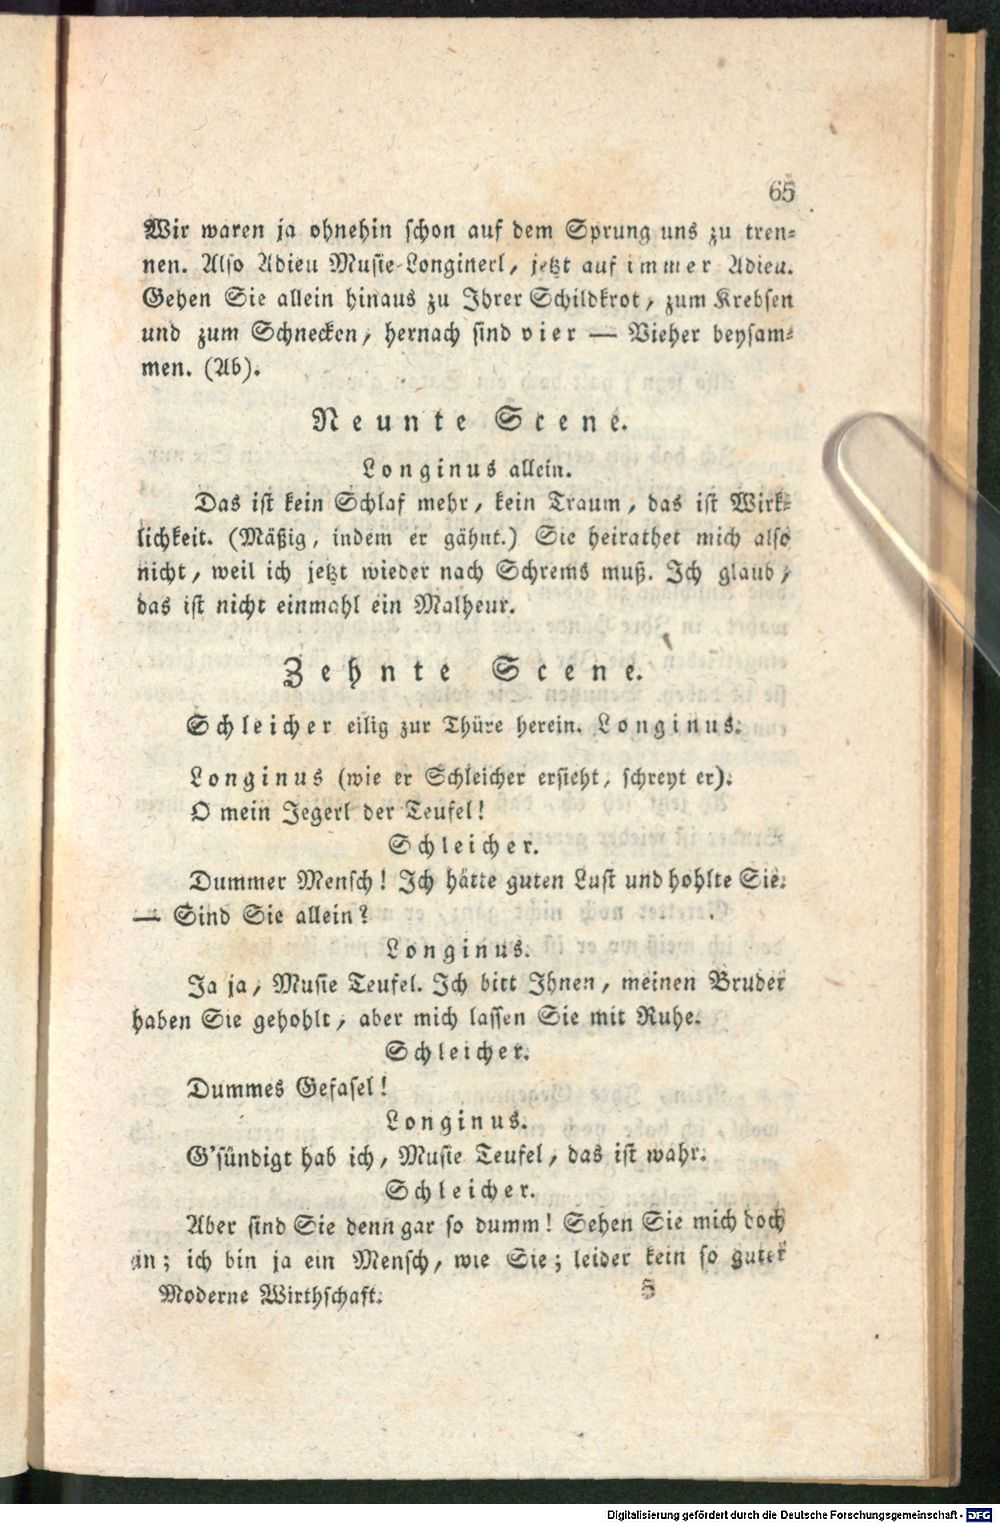 65
Wir waren ja ohnehin schon auf dem Sprung uns zu tren-
nen. Also Adieu Musie Longinerl, jetzt auf immer Adieu.
Gehen Sie allein hinaus zu Ihrer Schildkrot, zum Krebsen
und zum Schnecken, hernach sind vier — Vieher beysam-
men. (Ab).
Neunte Scene.
Longinus allein.
Das ist kein Schlaf mehr, kein Traum, das ist Wirk-
lichkeit. (Mäßig, indem er gähnt.) Sie heirathet mich also
nicht, weil ich jetzt wieder nach Schrems muß. Ich glaub,
das ist nicht einmahl ein Malheur.
Zehnte Scene.
Schleicher eilig zur Thüre herein. Longinus.
Longinus (wie er Schleicher ersieht, schreyt er).
O mein Jegerl der Teufel!
Schleicher.
Dummer Mensch! Ich hätte guten Lust und hohlte Sie.
— Sind Sie allein?
Longinus.
Ja ja, Musie Teufel. Ich bitt Ihnen, meinen Bruder
haben Sie gehohlt, aber mich lassen Sie mit Ruhe.
Schleicher.
Dummes Gefasel!
Longinus.
G'sündigt hab ich, Musie Teufel, das ist wahr.
Schleicher.
Aber sind Sie denn gar so dumm! Sehen Sie mich doch
an; ich bin ja ein Mensch, wie Sie; leider kein so guter
Moderne Wirthschaft. 5
Digitalisierung gefördert durch die Deutsche Forschungsgemeinschaft - DFG